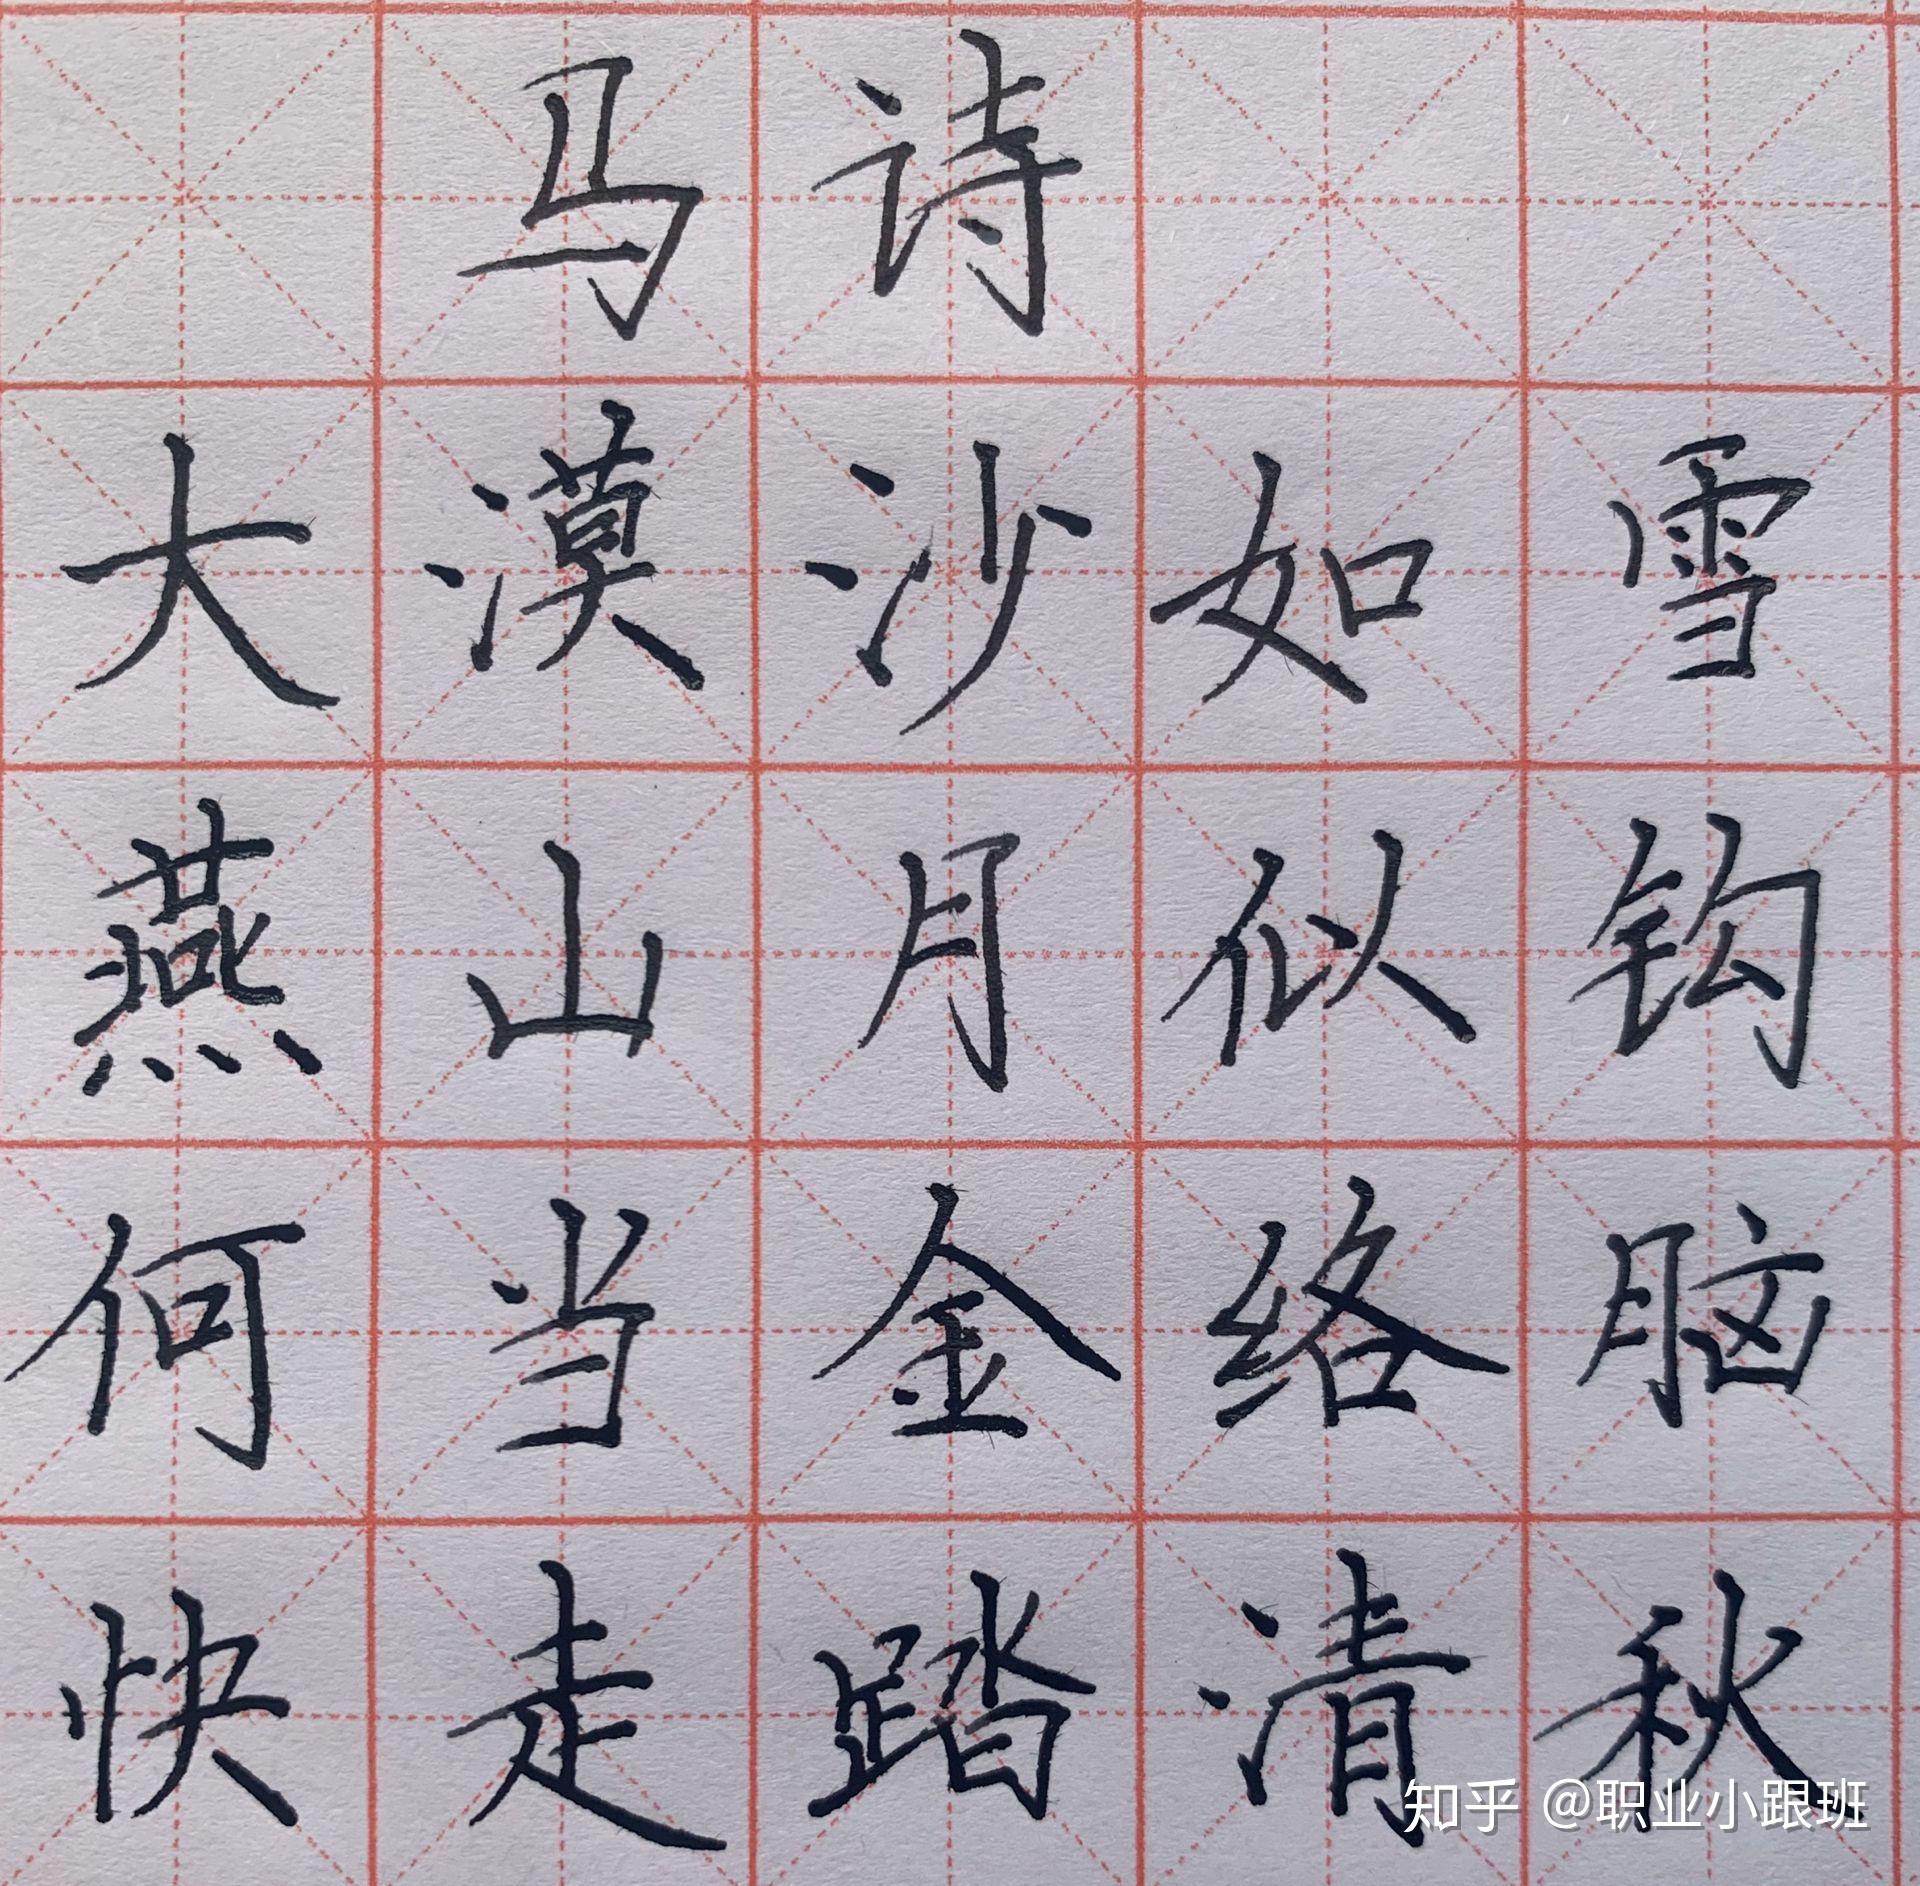 马诗
大漠沙如雪
燕山月似钩
何当金络脑
快走踏清秋
知乎 @职业小跟班